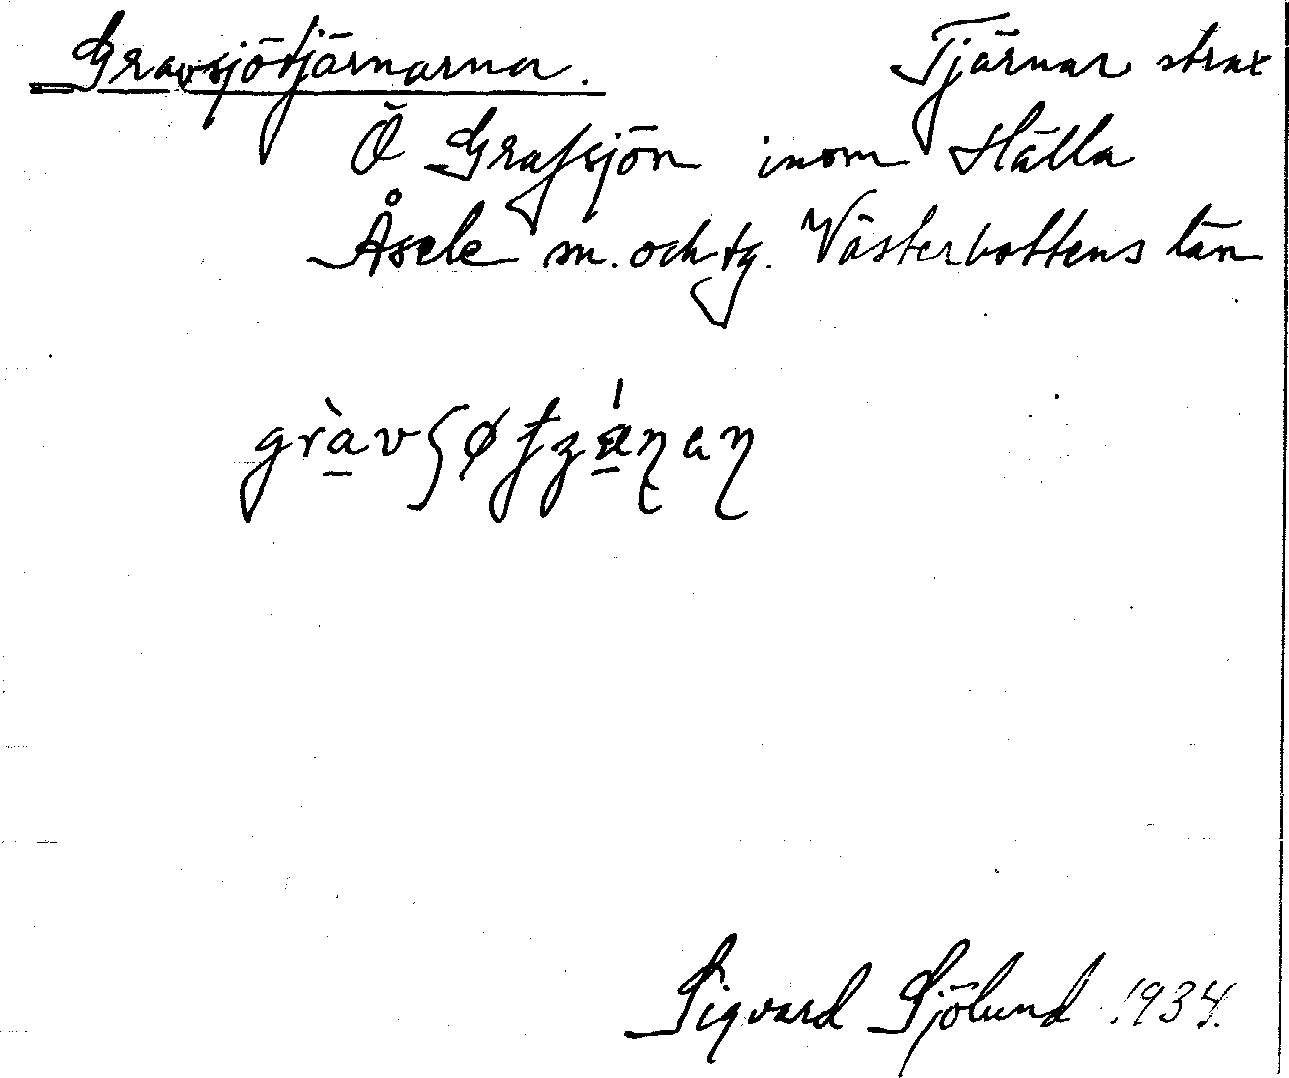 Gravsjötjärnarna. Tjärnar strax
Ö Grafsjön inom Hälla
Åsele sn. och tg. Västerbottens län
Sigvard Sjölund 1934.